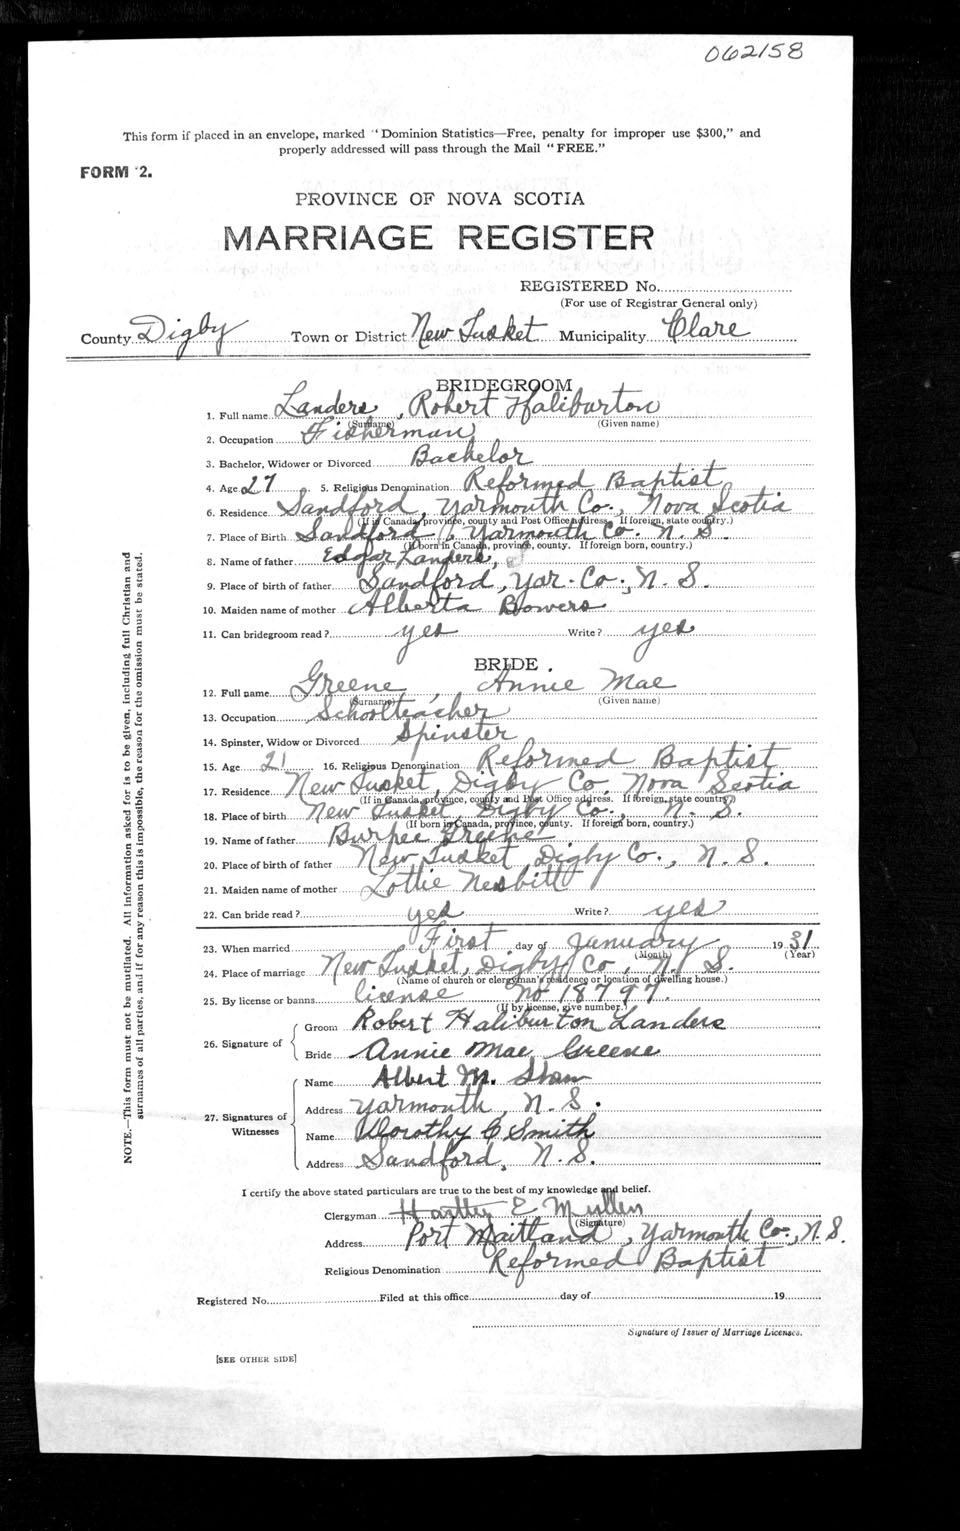 062158
This form if placed in an envelope, marked "Dominion Statistics—Free, penalty for improper use $300," and
properly addressed will pass through the Mail "FREE."
FORM 2.
PROVINCE OF NOVA SCOTIA
MARRIAGE REGISTER
REGISTERED No.
(For use of Registrar General only)
County Digby Town or District New Tusket Municipality Clare
BRIDEGROOM
1. Full name Landers, Robert Haliburton
(Surname) (Given name)
2. Occupation Fisherman
3. Bachelor, Widower or Divorced Bachelor
4. Age 27 5. Religious Denomination Reformed Baptist
6. Residence Sandford, Yarmouth Co., Nova Scotia
(If in Canada, province, county and Post Office address. If foreign, state country.)
7. Place of Birth Sandford, Yarmouth Co. N. S.
(If born in Canada, province, county. If foreign born, country.)
8. Name of father Edgar Landers,
9. Place of birth of father Sandford, Yar. Co., N. S.
10. Maiden name of mother Alberta Bowers
11. Can bridegroom read? yes Write? yes
BRIDE.
12. Full name Greene, Annie Mae
(Surname) (Given name)
13. Occupation Schoolteacher
14. Spinster, Widow or Divorced Spinster
15. Age 21 16. Religious Denomination Reformed Baptist
17. Residence New Tusket, Digby Co, Nova Scotia
(If in Canada, province, county and Post Office address. If foreign, state country)
18. Place of birth New Tusket, Digby Co., N. S.
(If born in Canada, province, county. If foreign born, country.)
19. Name of father Burpee Greene
20. Place of birth of father New Tusket, Digby Co., N. S.
21. Maiden name of mother Lottie Nesbitt
22. Can bride read? yes Write? yes
23. When married First day of January 1931
(Month) (Year)
24. Place of marriage New Tusket, Digby Co, N. S.
(Name of church or clergyman's residence or location of dwelling house.)
25. By license or banns license No 18797.
(If by license, give number.)
26. Signature of
Groom Robert Haliburton Landers
Bride Annie Mae Greene
27. Signatures of Witnesses
Name Albert M. Shaw
Address Yarmouth, N. S.
Name Dorothy C Smith
Address Sandford, N. S.
I certify the above stated particulars are true to the best of my knowledge and belief.
Clergyman Hartley E Mullen
(Signature)
Address Port Maitland, Yarmouth Co., N. S.
Religious Denomination Reformed Baptist
Registered No. Filed at this office day of 19
Signature of Issuer of Marriage Licenses.
[SEE OTHER SIDE]
NOTE.—This form must not be mutilated. All information asked for is to be given, including full Christian and
surnames of all parties, and if for any reason this is impossible, the reason for the omission must be stated.